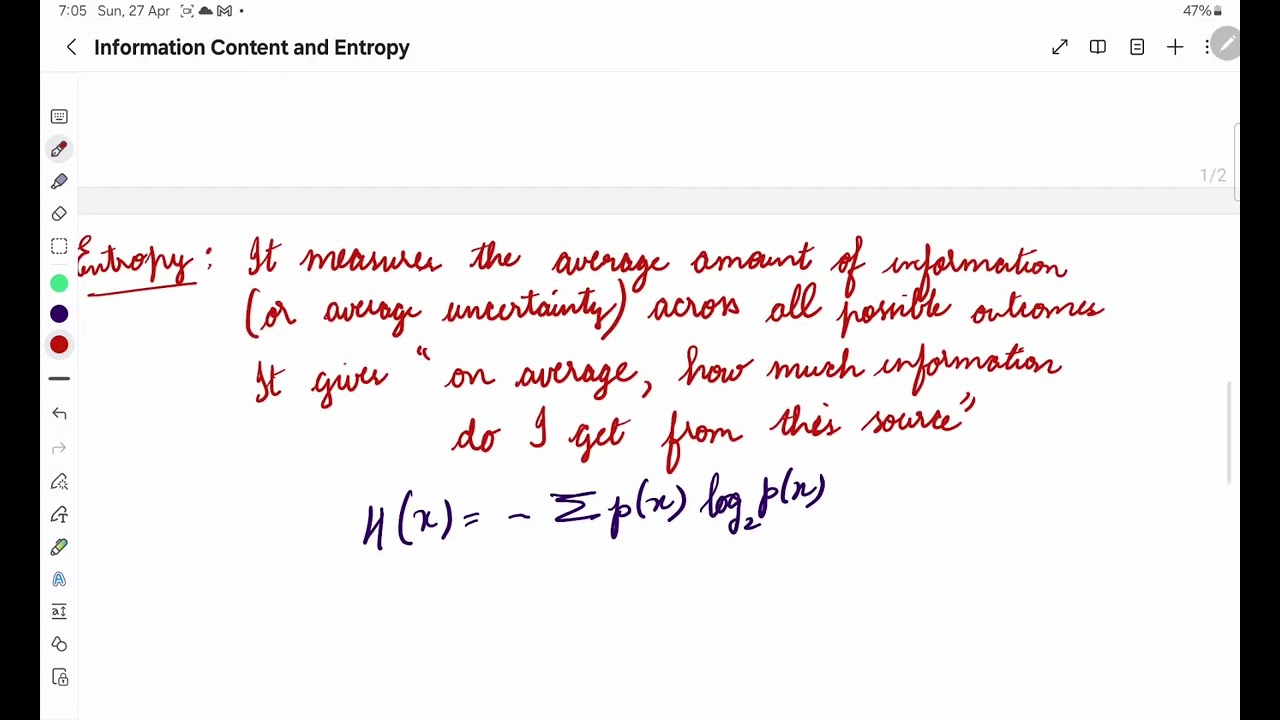 7:05 Sun, 27 Apr
47%
Information Content and Entropy
1/2
Entropy: It measures the average amount of information
(or average uncertainty) across all possible outcomes
It gives “on average, how much information
do I get from this source”
H(x) = - Σ p(x) log₂ p(x)